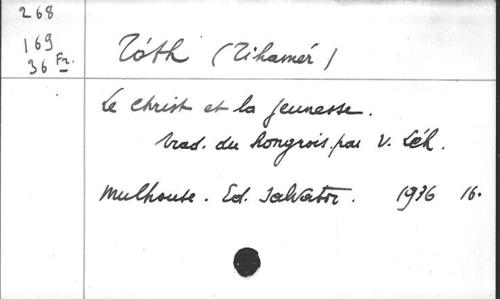 268
169
36 Fr.
Tóth (Tihamér)
Le Christ et la jeunesse.
trad. du hongrois par V. Léh.
Mulhouse. Ed. Salvator. 1936 16.